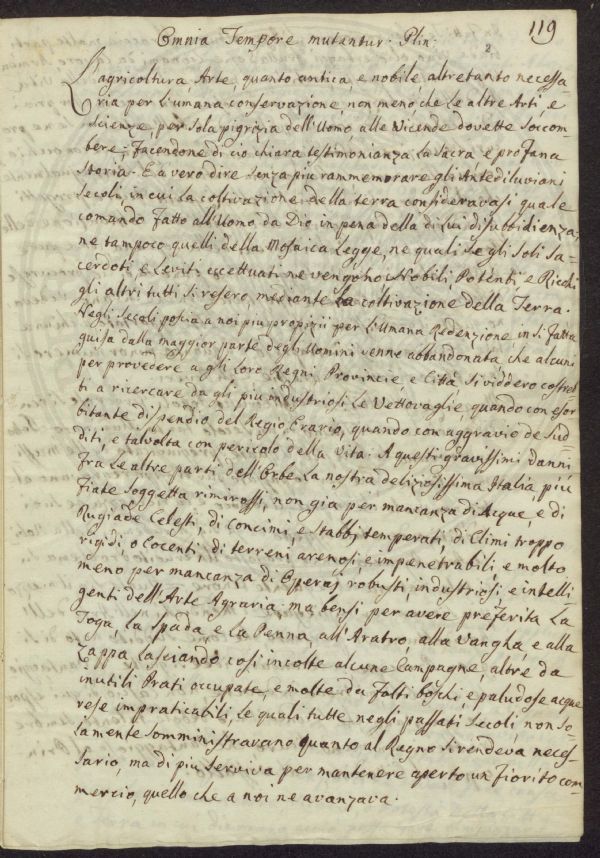 119
Omnia Tempore mutantur. Plin:
L'agricoltura, Arte, quanto antica, e nobile, altretanto necessa
ria per l'umana conservazione, non meno, che le altre Arti, e
Scienze, per sola pigrizia dell'Uomo alle Vicende dovette Soccom-
bere; facendone di ciò chiara testimonianza la Sacra e profana
Storia. E a vero dire senza più rammemorare gli Antediluviani
Secoli, in cui la coltivazione della terra consideravasi quale
comando fatto all'Uomo da Dio in pena della di lui disubbidienza,
ne tampoco quelli della Mosaica Legge, ne quali se gli soli Sa-
cerdoti, e Leviti eccettuati ne vengono Nobili Potenti e Ricchi
gli altri tutti si resero, mediante la coltivazione della Terra.
Negli Secoli poscia a noi più propizii per l'Umana Redenzione, in sì fatta
guisa dalla maggior parte degli Uomini venne abbandonata, che alcuni
per provedere a gli loro Regni Provincie, e Città si viddero costret
ti a ricercare da gli più industriosi le Vettovaglie, quando con esor
bitante dispendio del Regio Erario, quando con aggravio de Sud-
diti, e talvolta con pericolo della Vita. A questi gravissimi danni
frà le altre parti dell'Orbe la nostra deliziosissima Italia più
fiate soggetta rimirossi, non già per mancanza di Acque, e di
Rugiade Celesti, di concimi, e stabbj temperati, di Climi troppo
rigidi, o Cocenti, di terreni arenosi, e impenetrabili, e molto
meno per mancanza di Operaj robusti industriosi, e intelli
genti dell'Arte Agraria, ma bensì per avere preferita la
Toga, la Spada, e la Penna all'Aratro, alla Vangha, e alla
Zappa, lasciando così incolte alcune Campagne, altre da
inutili Prati occupate, e molte da folti boschi, e paludose acque
rese impraticabili, le quali tutte negli passati Secoli non so-
lamente somministravano quanto al Regno si rendeva neces-
sario, ma di più serviva per mantenere aperto un fiorito com
mercio, quello che a noi ne avanzava.